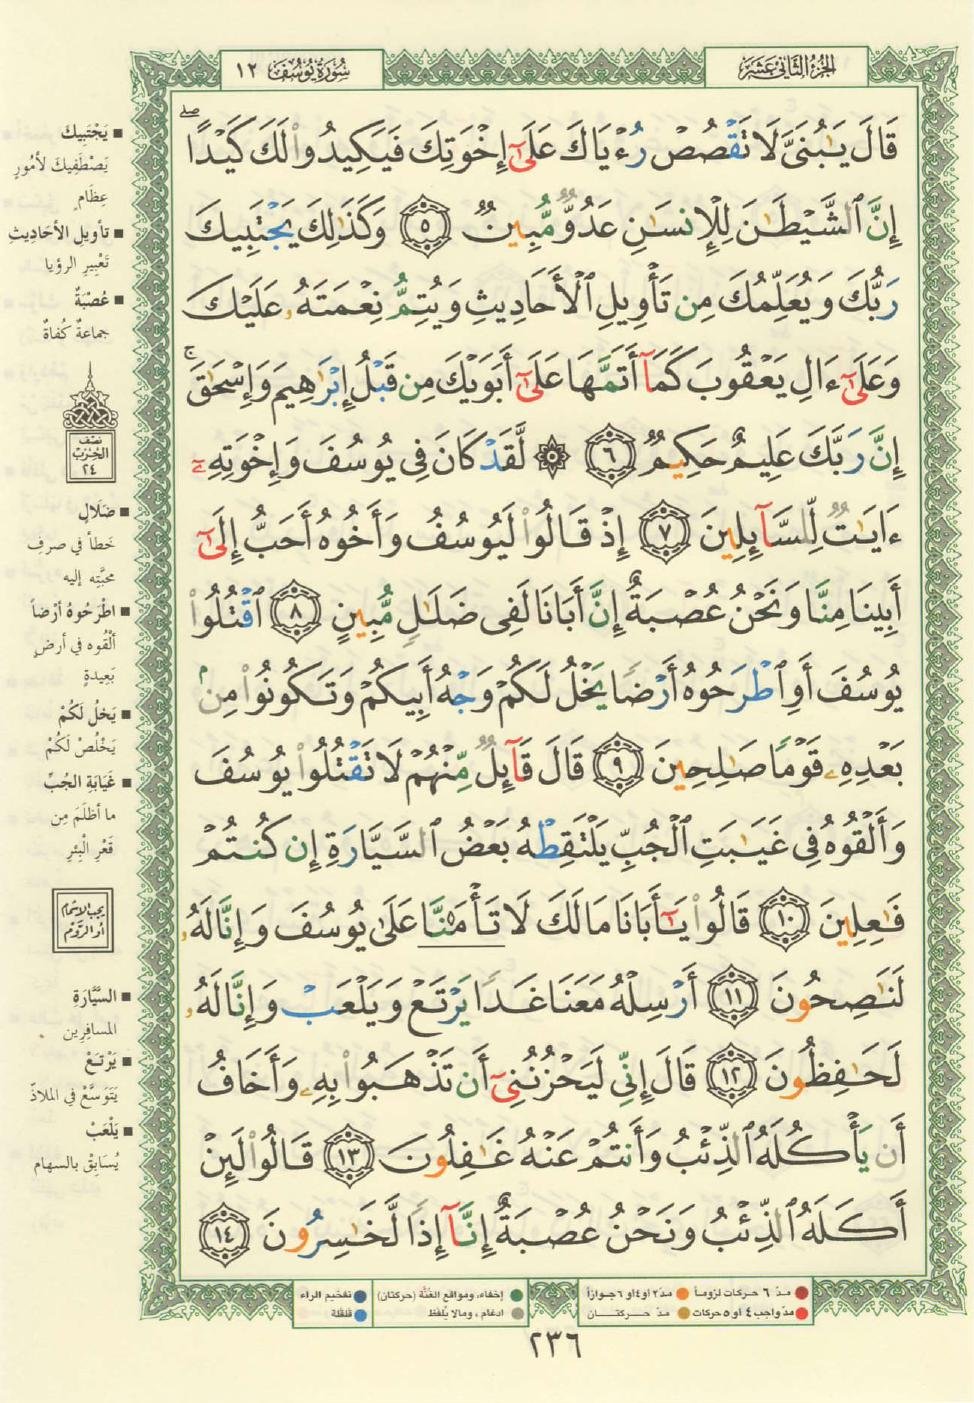 الجزء الثاني عشر
سورة يوسف ١٢
قَالَ يَـٰبُنَىَّ لَا تَقْصُصْ رُءْيَاكَ عَلَىٰٓ إِخْوَتِكَ فَيَكِيدُوا۟ لَكَ كَيْدًا ۖ
إِنَّ ٱلشَّيْطَـٰنَ لِلْإِنسَـٰنِ عَدُوٌّ مُّبِينٌ ٥ وَكَذَٰلِكَ يَجْتَبِيكَ
رَبُّكَ وَيُعَلِّمُكَ مِن تَأْوِيلِ ٱلْأَحَادِيثِ وَيُتِمُّ نِعْمَتَهُۥ عَلَيْكَ
وَعَلَىٰٓ ءَالِ يَعْقُوبَ كَمَآ أَتَمَّهَا عَلَىٰٓ أَبَوَيْكَ مِن قَبْلُ إِبْرَٰهِيمَ وَإِسْحَـٰقَ ۚ
إِنَّ رَبَّكَ عَلِيمٌ حَكِيمٌ ٦ ۞ لَّقَدْ كَانَ فِى يُوسُفَ وَإِخْوَتِهِۦٓ
ءَايَـٰتٌ لِّلسَّآئِلِينَ ٧ إِذْ قَالُوا۟ لَيُوسُفُ وَأَخُوهُ أَحَبُّ إِلَىٰٓ
أَبِينَا مِنَّا وَنَحْنُ عُصْبَةٌ إِنَّ أَبَانَا لَفِى ضَلَـٰلٍ مُّبِينٍ ٨ ٱقْتُلُوا۟
يُوسُفَ أَوِ ٱطْرَحُوهُ أَرْضًا يَخْلُ لَكُمْ وَجْهُ أَبِيكُمْ وَتَكُونُوا۟ مِنۢ
بَعْدِهِۦ قَوْمًا صَـٰلِحِينَ ٩ قَالَ قَآئِلٌ مِّنْهُمْ لَا تَقْتُلُوا۟ يُوسُفَ
وَأَلْقُوهُ فِى غَيَـٰبَتِ ٱلْجُبِّ يَلْتَقِطْهُ بَعْضُ ٱلسَّيَّارَةِ إِن كُنتُمْ
فَـٰعِلِينَ ١٠ قَالُوا۟ يَـٰٓأَبَانَا مَا لَكَ لَا تَأْمَ۫نَّا عَلَىٰ يُوسُفَ وَإِنَّا لَهُۥ
لَنَـٰصِحُونَ ١١ أَرْسِلْهُ مَعَنَا غَدًا يَرْتَعْ وَيَلْعَبْ وَإِنَّا لَهُۥ
لَحَـٰفِظُونَ ١٢ قَالَ إِنِّى لَيَحْزُنُنِىٓ أَن تَذْهَبُوا۟ بِهِۦ وَأَخَافُ
أَن يَأْكُلَهُ ٱلذِّئْبُ وَأَنتُمْ عَنْهُ غَـٰفِلُونَ ١٣ قَالُوا۟ لَئِنْ
أَكَلَهُ ٱلذِّئْبُ وَنَحْنُ عُصْبَةٌ إِنَّآ إِذًا لَّخَـٰسِرُونَ ١٤
■ يَجْتَبِيكَ
يَصْطَفِيكَ لأُمُورٍ
عِظَام
■ تأويل الأحاديثِ
تَعْبِيرِ الرؤيا
■ عُصْبَةٌ
جماعةٌ كُفاةٌ
نصف
الحزب
٢٤
■ ضَلَالٍ
خطأ في صرفِ
محبَّتِه إليه
■ اطْرَحُوهُ أرْضاً
ألْقُوه في أرضٍ
بَعِيدةٍ
■ يَخلُ لَكُمْ
يَخْلُصْ لَكُمْ
■ غَيَابَةِ الجُبِّ
ما أظلَمَ مِن
قَعْرِ الْبِئرِ
يجب الإشمام
أو الرَّوْم
■ السَّيَّارَةِ
المسافِرِين
■ يَرْتَعْ
يَتَوَسَّعْ في الملاذّ
■ يَلْعَبْ
يُسَابِقْ بالسهام
مدّ ٦ حركات لزوماً
مدّ ٢ أو ٤ أو ٦ جوازاً
مدّ واجب ٤ أو ٥ حركات
مدّ حركتان
إخفاء، ومواقع الغُنَّة (حركتان)
ادغام، ومالا يُلفَظ
تفخيم الراء
قلقلة
٢٣٦